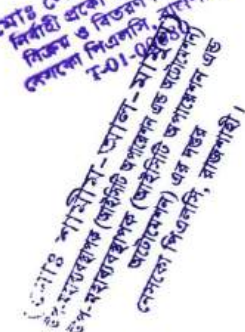 মোঃ
নির্বাহী প্রকৌ
বিক্রয় ও বিতরণ
নেসকো পিএলসি,
T-01-0
মোঃ শামীম-আল-মা
উপ-মহাব্যবস্থাপক (আইসিটি অপারেশন এন্ড অটোমেশন)
উপ-মহাব্যবস্থাপক (আইসিটি অপারেশন এন্ড
অটোমেশন) এর দপ্তর
নেসকো পিএলসি, রাজশাহী।